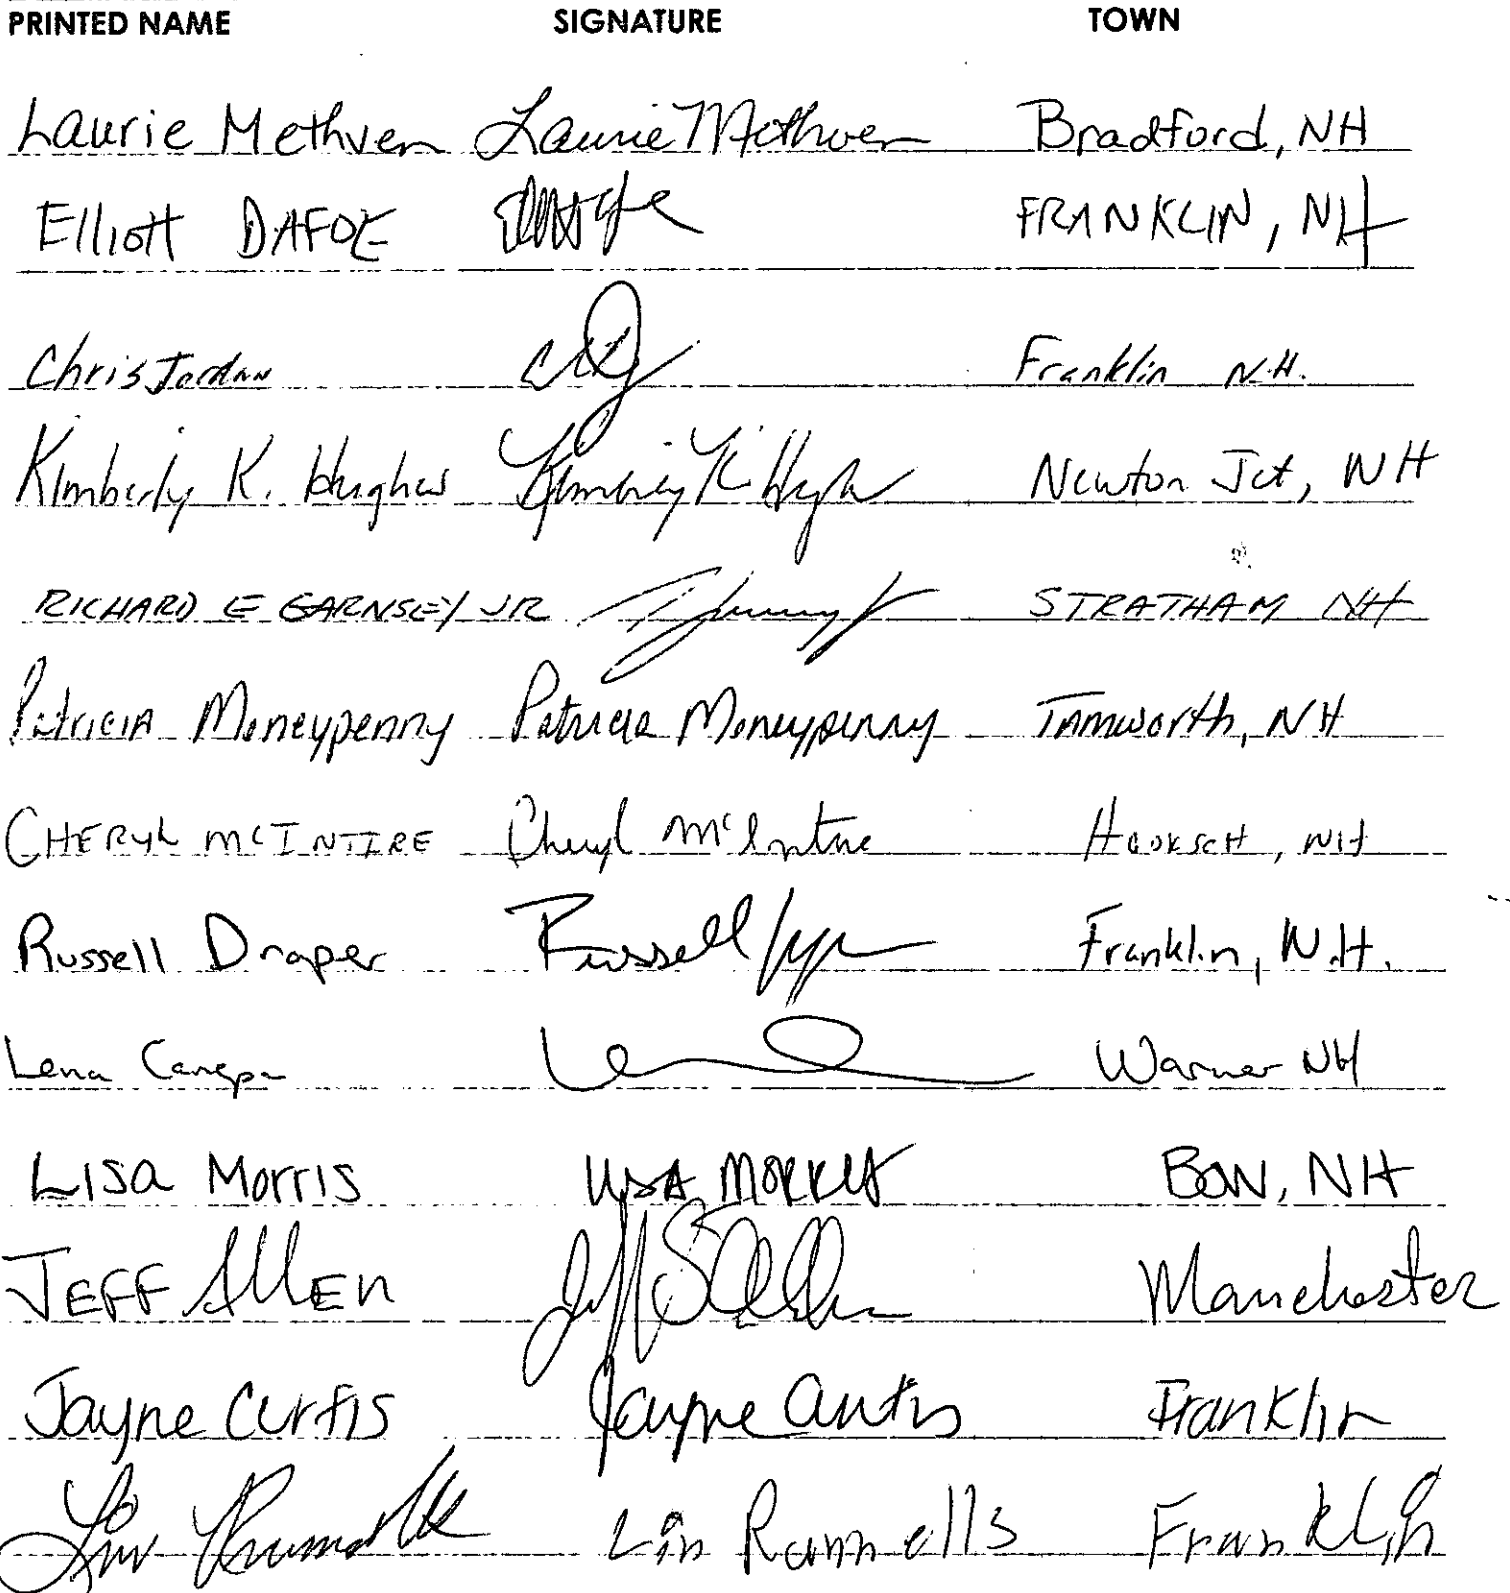 PRINTED NAME SIGNATURE TOWN
Laurie Methven Laurie Methven Bradford, NH
Elliott DAFOE FRANKLIN, NH
Chris Jordan Franklin N.H.
Kimberly K. Hughes Kimberly K Hughes Newton Jct, NH
RICHARD E GARNSEY JR STRATHAM NH
Patricia Moneypenny Patricia Moneypenny Tamworth, NH
CHERYL McINTIRE Cheryl McIntire Hooksett, NH
Russell Draper Russell Franklin, N.H.
Lena Canepa Warner NH
Lisa Morris LISA MORRIS BOW, NH
JEFF AllEn Manchester
Jayne Curtis Jayne Curtis Franklin
Lin Lin Runnells Franklin